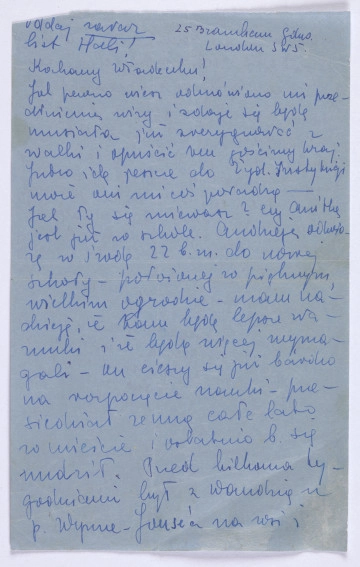 oddaj zaraz
list Hali!
25 Bramham Gdns.
London SW5.
Kochany Władeczku!
Jak pewno wiesz odmówiono mi prze-
dłużenia wizy i zdaje się będę
musiała już zrezygnować z
walki i opuścić ten gościnny kraj.
Jutro idę jeszcze do Żyd. Instytucji
może oni mi coś poradzą —
Jak Ty się miewasz? czy Anitka
jest już w szkole. Andrzeja odwio-
zę w środę 22 b.m. do nowej
szkoły – położonej w pięknym,
wielkim ogrodzie – mam na-
dzieję, że tam będą lepsze wa-
runki i że będą więcej wyma-
gali – on cieszy się już bardzo
na rozpoczęcie nauki – prze-
siedział ze mną całe lato
w mieście i ostatnio b. się
nudził. Przed kilkoma ty-
godniami był z Wandzią u
p. Wynne-Jones'a na wsi i